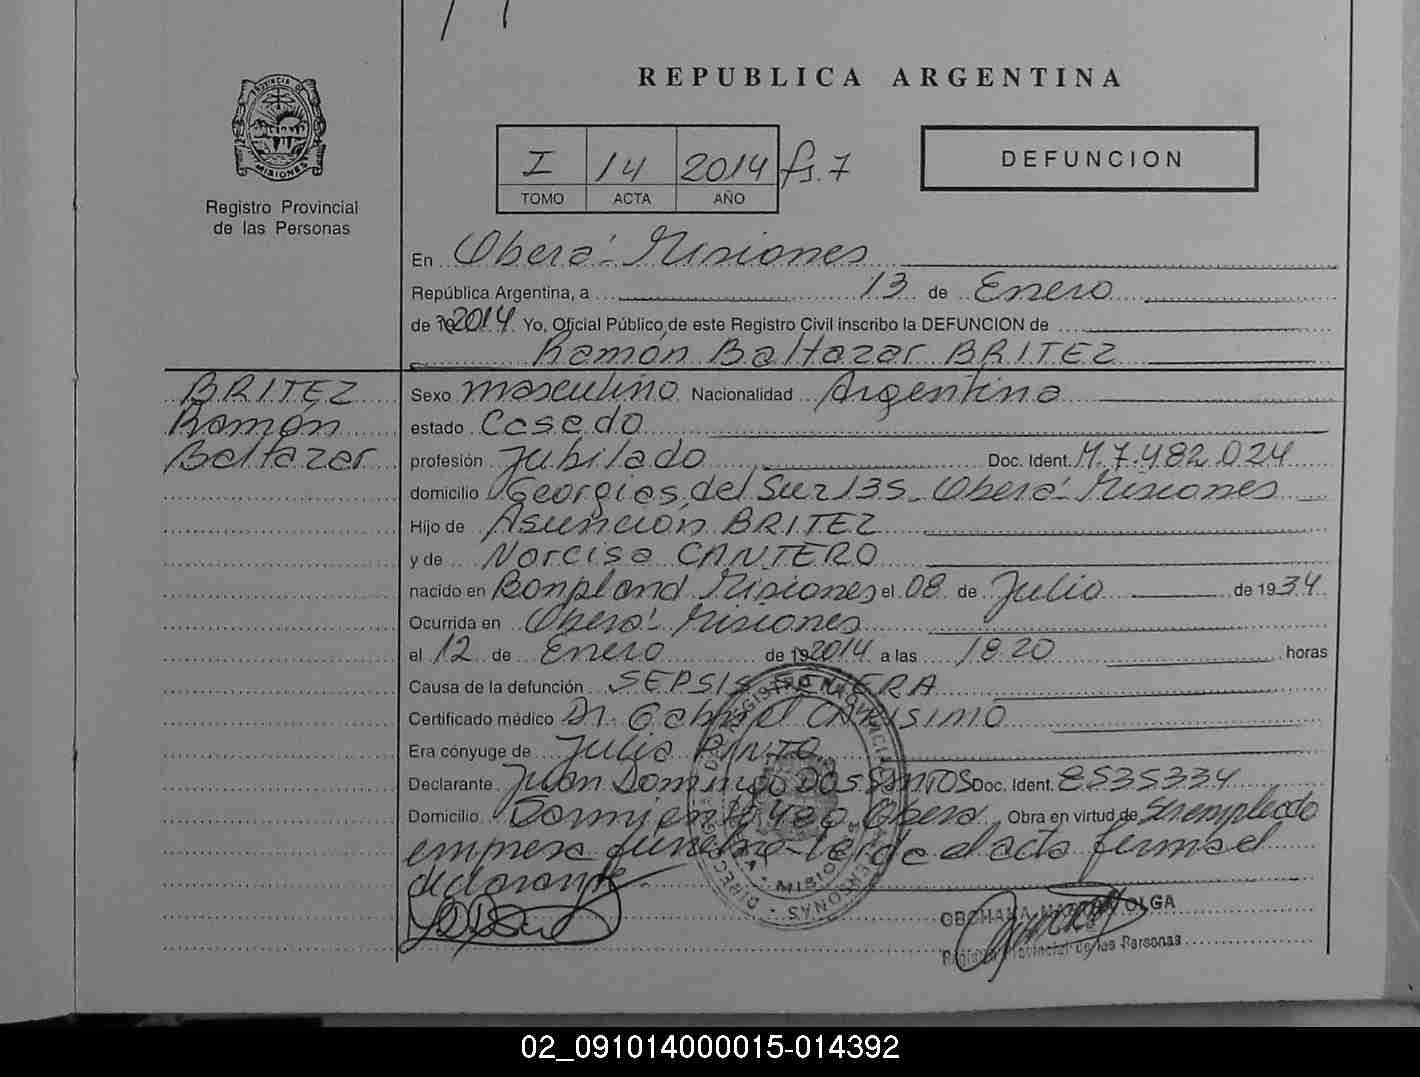 REPUBLICA ARGENTINA
PROVINCIA DE
MISIONES
Registro Provincial
de las Personas
I 14 2014 fs. 7
TOMO ACTA AÑO
DEFUNCION
En Oberá - Misiones
República Argentina, a 13 de Enero
de 192014 Yo, Oficial Público de este Registro Civil inscribo la DEFUNCION de
Ramón Baltazar BRITEZ
BRITEZ
Ramón
Baltazar
Sexo masculino Nacionalidad Argentina
estado Casado
profesión Jubilado Doc. Ident. M. 7.482.024
domicilio Georgias del Sur 135 - Oberá - Misiones
Hijo de Asunción BRITEZ
y de Narcisa CANTERO
nacido en Bonpland Misiones el 08 de Julio de 1934
Ocurrida en Oberá - Misiones
el 12 de Enero de 192014 a las 18.20 horas
Causa de la defunción SEPSIS SEVERA
Certificado médico Dr. Gabriel CARISIMO
Era cónyuge de Julia PINTO
Declarante Juan Domingo DOS SANTOS Doc. Ident. 8535334
Domicilio Sarmiento 480 Oberá Obra en virtud de ser empleado
empresa fúnebre - Leída el acta firma el
declarante.
OLGA
Registro Provincial de las Personas
02_091014000015-014392